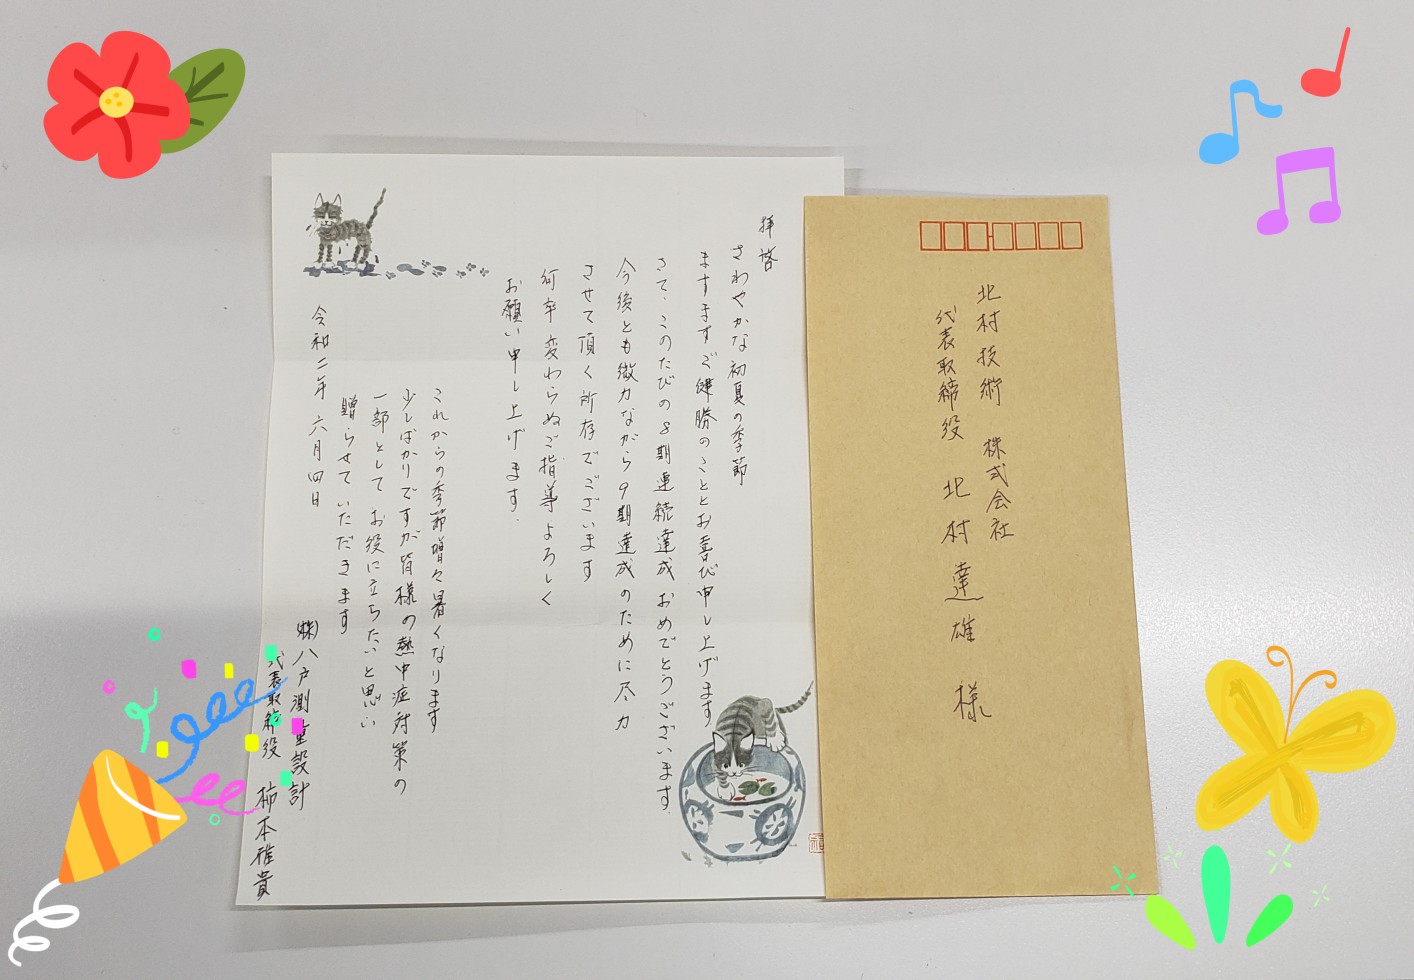 拝啓
さわやかな初夏の季節
ますますご健勝のこととお喜び申し上げます
さて、このたびの8期連続達成おめでとうございます.
今後とも微力ながら9期達成のために尽力
させて頂く所存でございます
何卒変わらぬご指導よろしく
お願い申し上げます.
これからの季節増々暑くなります
少しばかりですが皆様の熱中症対策の
一部としてお役に立ちたいと思い
贈らせていただきます
令和二年 六月四日
㈱八戸測量設計
代表取締役 柿本雅貴
北村技術 株式会社
代表取締役 北村達雄 様